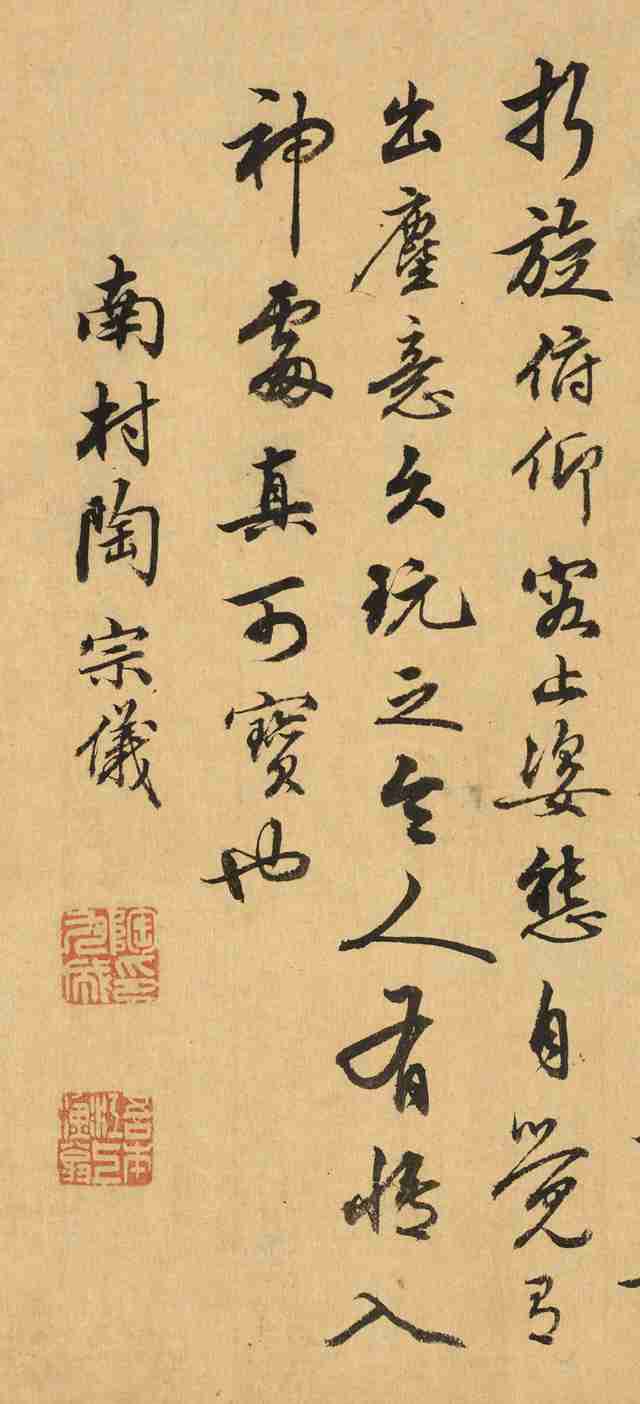 折旋俯仰容止姿態自覺有
出塵意久玩之令人有悟入
神處真可寶也
南村陶宗儀